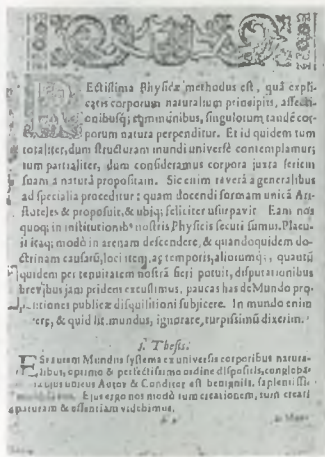 REctissima Physicæ methodus est, quâ expli-
catis corporum naturalium principiis, affecti-
onibusq; communibus, singulorum tandē cor-
porum natura perpenditur. Et id quidem tum
totaliter, dum structuram mundi universè contemplamur;
tum partialiter, dum consideramus corpora juxta seriem
suam à naturâ propositam. Sic enim reverâ à generalibus
ad specialia proceditur: quam docendi formam unicâ Ari-
stoteles & proposuit, & ubiq; feliciter usurpavit. Eam nos
quoq; in institutionib9 nostris Physicis secuti sumus. Placu-
it itaq; modò in arenam descendere, & quandoquidem do-
ctrinam causarū, loci item, ac temporis, aliorumq;, quantū
quidem per tenuitatem nostrā fieri potuit, disputationibus
brevibus jam pridem excussimus, paucas has de Mundo pro-
positiones publicæ disquisitioni subjicere. In mundo enim
& quid sit mundus, ignorare, turpissimū dixerim.
1. Thesis.
ESt autem Mundus systema ex universis corporibus natura-
libus, optimo & perfectissimo ordine dispositis, conglobata
cujus unicus Autor & Conditor est benigniss. sapientiss.
Ejus ergo nos modò tum creationem, tum creati
naturam & essentiam videbimus.